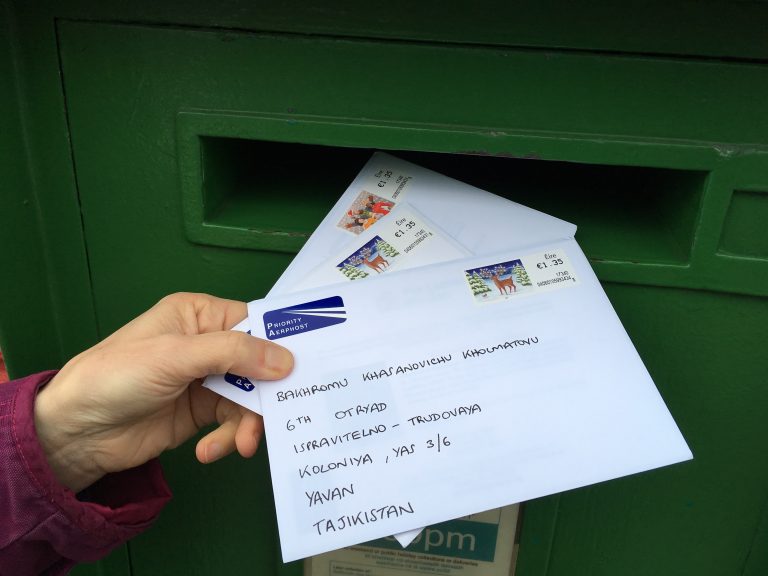 Éire
€1.35
17340
Éire
€1.35
17340
Éire
€1.35
17340
PRIORITY
AERPHOST
PA
BAKHROMU KHASANOVICHU KHOLMATOVU
6TH OTRYAD
ISPRAVITELNO - TRUDOVAYA
KOLONIYA, YAS 3/6
YAVAN
TAJIKISTAN
pm